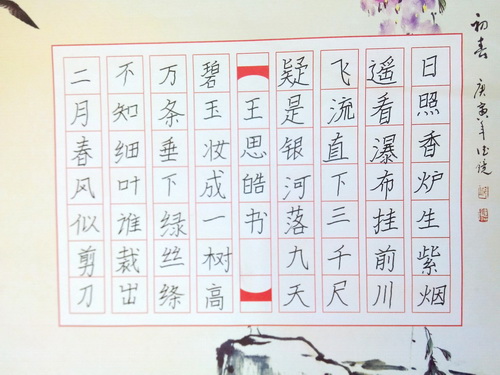 初春
庚寅年
日照香炉生紫烟
遥看瀑布挂前川
飞流直下三千尺
疑是银河落九天
王思皓书
碧玉妆成一树高
万条垂下绿丝绦
不知细叶谁裁出
二月春风似剪刀